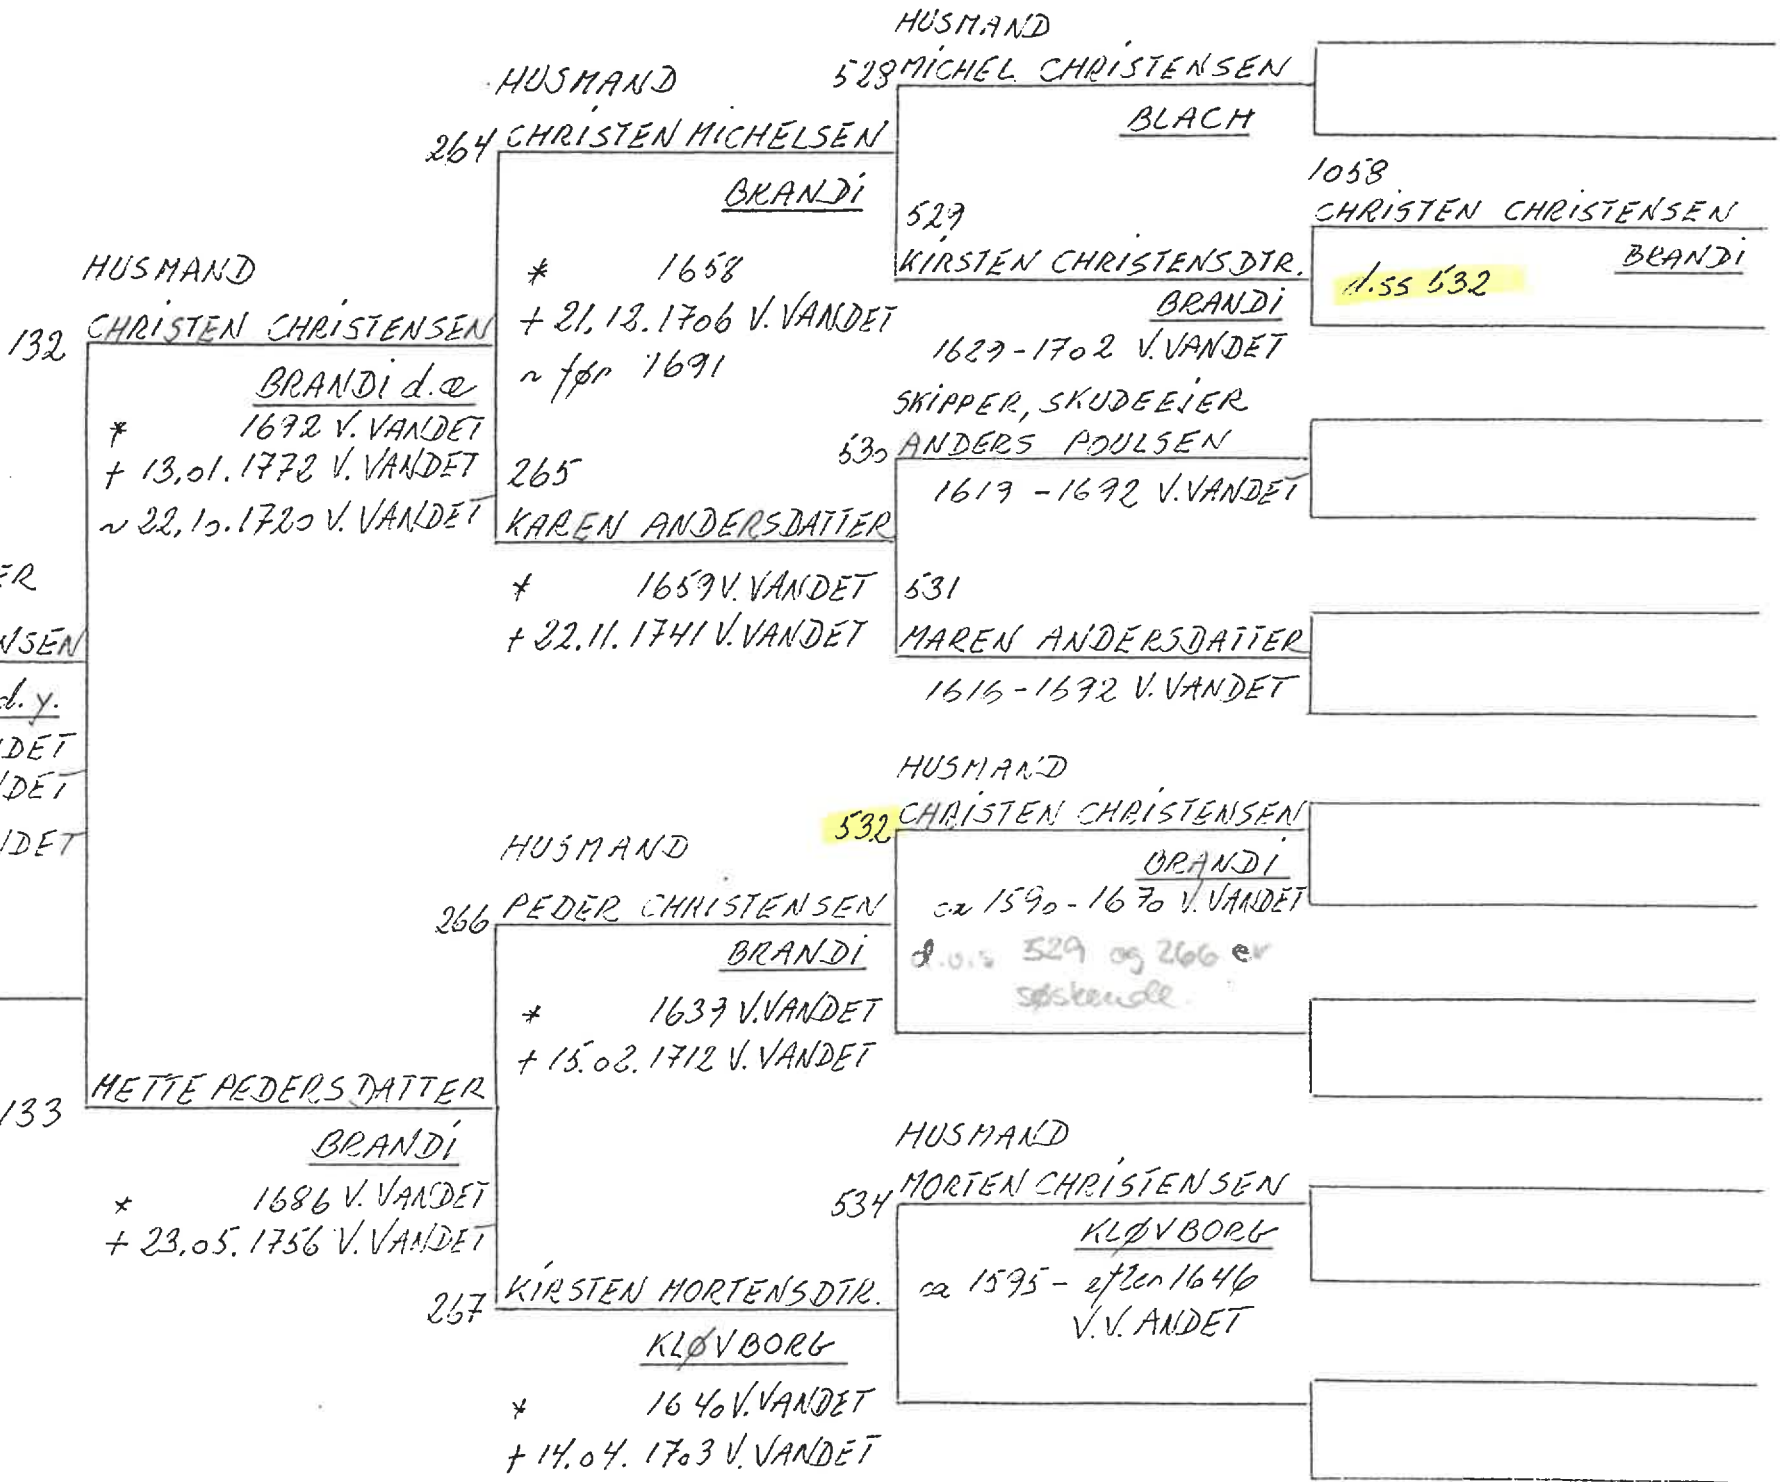 ER
NSEN
d.y.
NDET
NDET
NDET
HUSMAND
132 CHRISTEN CHRISTENSEN
BRANDI d.æ
* 1692 V. VANDET
+ 13.01.1772 V. VANDET
~ 22.10.1720 V. VANDET
133 METTE PEDERSDATTER
BRANDI
* 1686 V. VANDET
+ 23.05.1756 V. VANDET
HUSMAND
264 CHRISTEN MICHELSEN
BRANDI
* 1658
+ 21.12.1706 V. VANDET
~ før 1691
265
KAREN ANDERSDATTER
* 1659 V. VANDET
+ 22.11.1741 V. VANDET
HUSMAND
266 PEDER CHRISTENSEN
BRANDI
* 1639 V. VANDET
+ 15.02.1712 V. VANDET
267 KIRSTEN MORTENSDTR.
KLØVBORG
* 1640 V. VANDET
+ 14.04.1703 V. VANDET
HUSMAND
528 MICHEL CHRISTENSEN
BLACH
529
KIRSTEN CHRISTENSDTR.
BRANDI
1629-1702 V. VANDET
SKIPPER, SKUDEEJER
530 ANDERS POULSEN
1619-1692 V. VANDET
531
MAREN ANDERSDATTER
1616-1692 V. VANDET
HUSMAND
532 CHRISTEN CHRISTENSEN
BRANDI
ca 1590-1670 V. VANDET
d.v.s 529 og 266 er
søskende.
HUSMAND
534 MORTEN CHRISTENSEN
KLØVBORG
ca 1595 - efter 1646
V. V. ANDET
1058
CHRISTEN CHRISTENSEN
BRANDI
d.ss 532